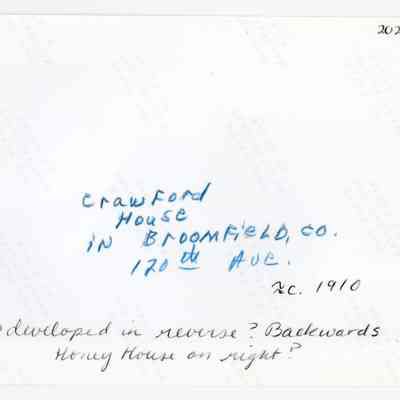 202
Crawford
House
in Broomfield, CO.
120th Ave.
c. 1910
developed in reverse? Backwards
Honey House on right?